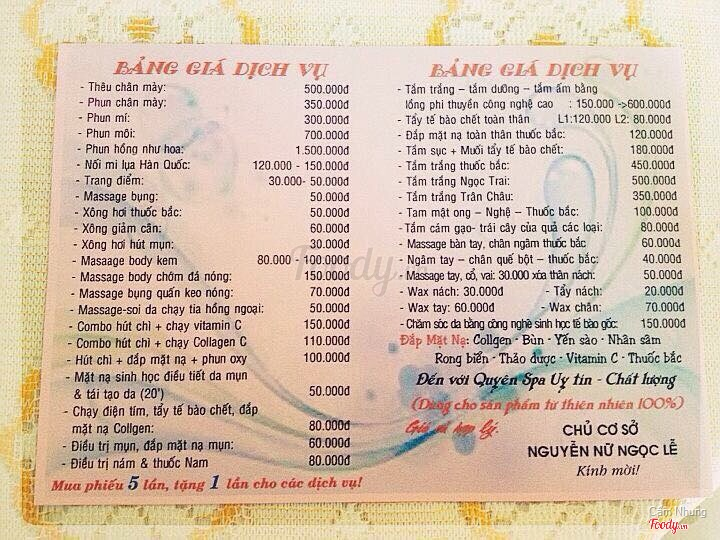 BẢNG GIÁ DỊCH VỤ
- Thêu chân mày: 500.000đ
- Phun chân mày: 350.000đ
- Phun mí: 300.000đ
- Phun môi: 700.000đ
- Phun hồng như hoa: 1.500.000đ
- Nối mi lụa Hàn Quốc: 120.000 - 150.000đ
- Trang điểm: 30.000- 50.000đ
- Massage bụng: 50.000đ
- Xông hơi thuốc bắc: 50.000đ
- Xông giảm cân: 60.000đ
- Xông hơi hút mụn: 30.000đ
- Masaage body kem 80.000 - 100.000đ
- Massage body chởm đá nóng: 150.000đ
- Massage bụng quấn keo nóng: 70.000đ
- Massage-soi da chạy tia hồng ngoại: 50.000đ
- Combo hút chì + chạy vitamin C 150.000đ
- Combo hút chì + chạy Collagen C 110.000đ
- Hút chì + đắp mặt nạ + phun oxy 100.000đ
- Mặt nạ sinh học điều tiết da mụn
& tái tạo da (20') 50.000đ
- Chạy điện tím, tẩy tế bào chết, đắp
mặt nạ Collgen: 80.000đ
- Điều trị mụn, đắp mặt nạ mụn: 60.000đ
- Điều trị nám & thuốc Nam 80.000đ
Mua phiếu 5 lần, tặng 1 lần cho các dịch vụ!
BẢNG GIÁ DỊCH VỤ
- Tắm trắng – tắm dưỡng – tắm ấm bằng
lồng phi thuyền công nghệ cao : 150.000 ->600.000đ
- Tẩy tế bào chết toàn thân L1:120.000 L2: 80.000đ
- Đắp mặt nạ toàn thân thuốc bắc: 120.000đ
- Tắm sục + Muối tẩy tế bào chết: 180.000đ
- Tắm trắng thuốc bắc: 450.000đ
- Tắm trắng Ngọc Trai: 500.000đ
- Tắm trắng Trân Châu: 350.000đ
- Tam mật ong – Nghệ – Thuốc bắc: 100.000đ
- Tắm cám gạo- trái cây của quả các loại: 80.000đ
- Massage bàn tay, chân ngâm thuốc bắc 60.000đ
- Ngâm tay – chân quế bột – thuốc bắc: 40.000đ
- Massage tay, cổ, vai: 30.000 xóa thân nách: 50.000đ
- Wax nách: 30.000đ - Tẩy nách: 20.000đ
- Wax tay: 60.000đ - Wax chân: 70.000đ
- Chăm sóc da bằng công nghệ sinh học tế bào gốc: 150.000đ
Đắp Mặt Nạ: Collgen - Bùn - Yến sào - Nhân sâm
Rong biển - Thảo dược - Vitamin C - Thuốc bắc
Đến với Quyên Spa Uy tín - Chất lượng
(Dùng cho sản phẩm từ thiên nhiên 100%)
Giá cả hợp lý.
CHỦ CƠ SỞ
NGUYỄN NỮ NGỌC LỄ
Kính mời!
Foody
Cẩm Nhung
Foody.vn